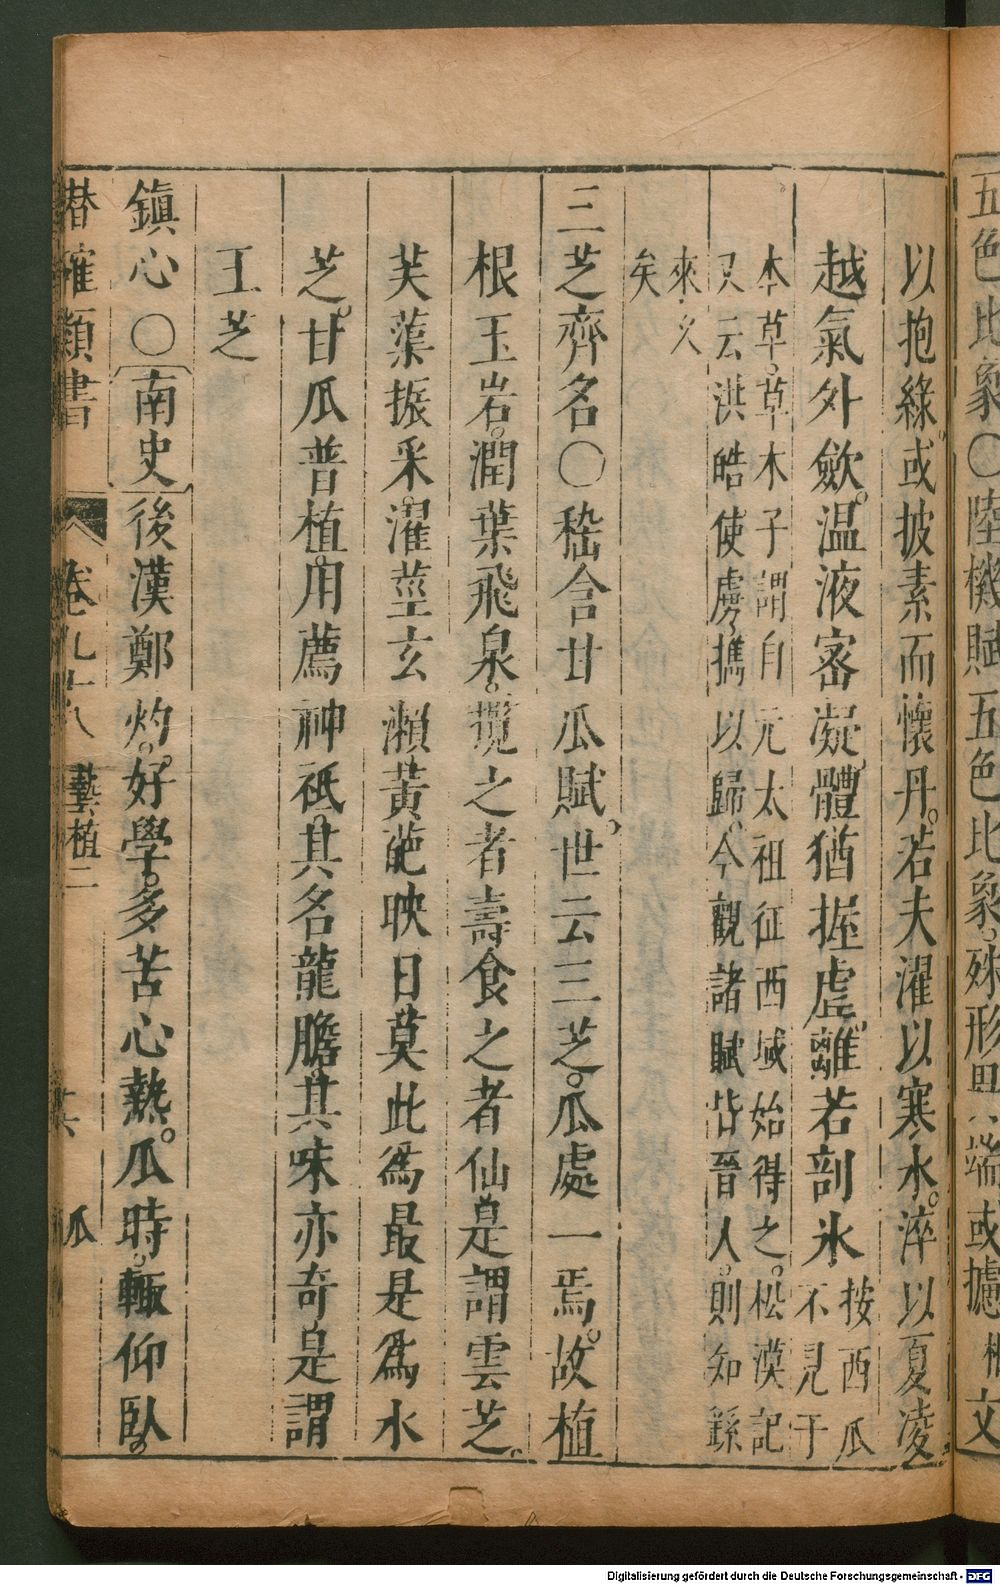 五色比象〇陸機賦五色比象殊形異端或攄文
以抱綠或披素而懷丹若夫濯以寒水淬以夏凌
越氣外歛温液密凝體猶握虛離若剖氷按西瓜不見于
本草草木子謂自元太祖征西域始得之松漠記
又云洪皓使虜攜以歸今觀諸賦皆晉人則知繇
來久
矣
三芝齊名〇嵇含甘瓜賦世云三芝瓜處一焉故植
根玉岩潤葉飛泉攬之者壽食之者仙是謂雲芝
芙蕖振采濯莖玄瀨黃葩映日莫此爲最是爲水
芝甘瓜普植用薦神祇其名龍膽其味亦奇是謂
土芝
鎮心〇南史後漢鄭灼好學多苦心熱瓜時輙仰臥
潜確類書 卷九十八 藝植二 瓜
Digitalisierung gefördert durch die Deutsche Forschungsgemeinschaft - DFG